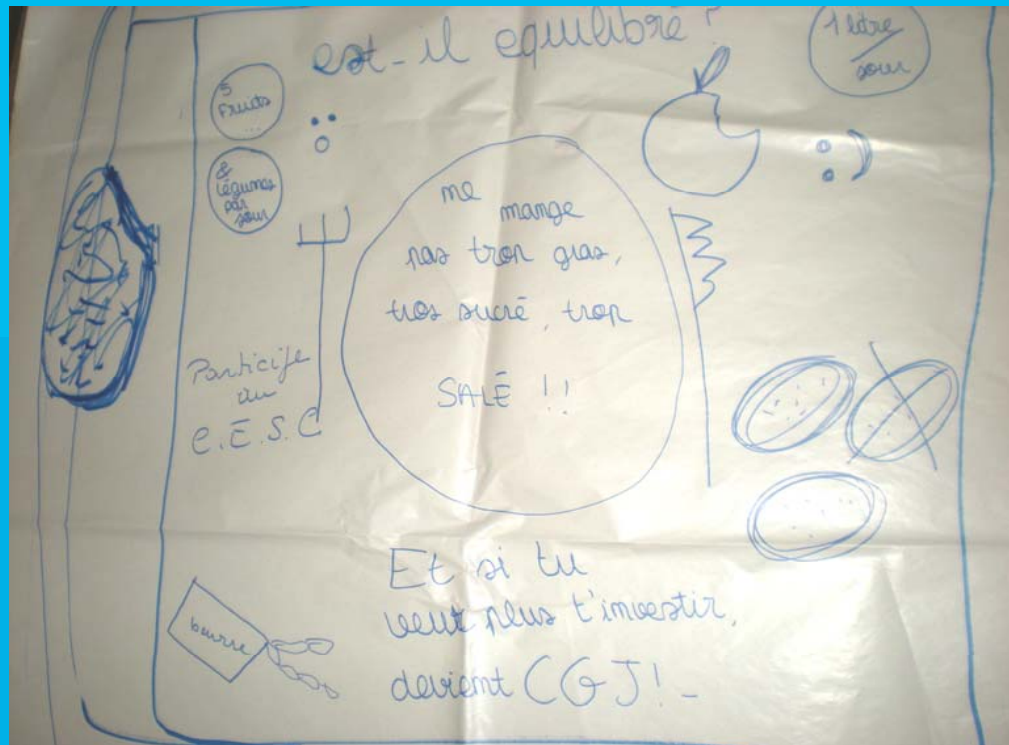 est-il equilibré ?
1 litre
/
jour
5
Fruits
...
&
légumes
par
jour
me mange
pas trop gras,
trop sucré, trop
SALÉ !!
Participe
au
C.E.S.C
beurre
Et si tu
veut plus t'investir,
devient CGJ! -